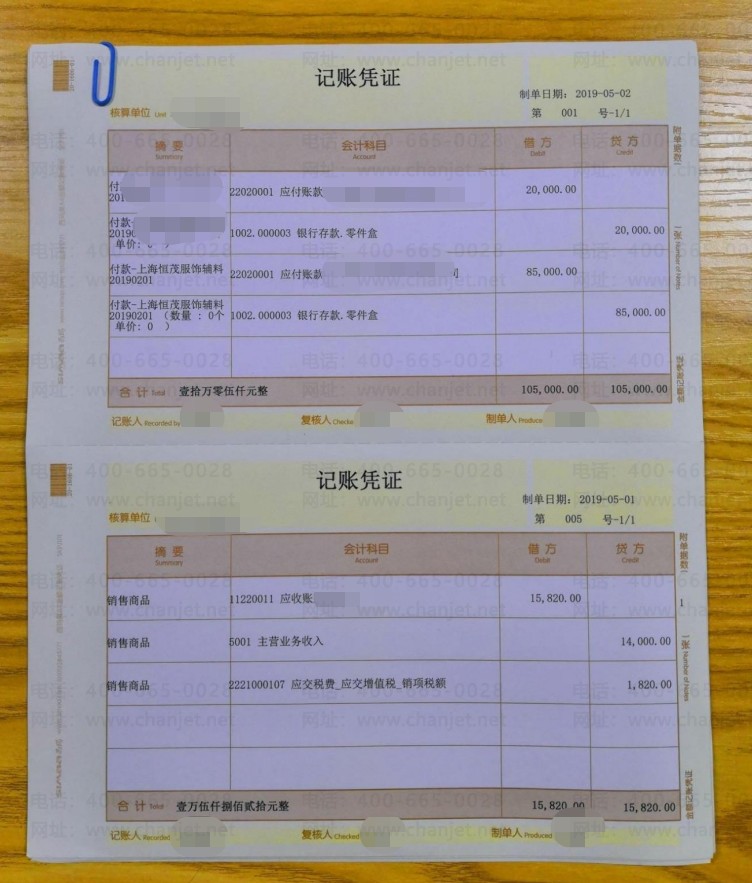 记账凭证
制单日期: 2019-05-02
核算单位 Unit
第 001 号-1/1
摘 要 会计科目 借 方 贷 方
Summary Account Debit Credit
付 22020001 应付账款 20,000.00
201
付款- 1002.000003 银行存款.零件盒 20,000.00
20190
单价:
付款-上海恒茂服饰辅料 22020001 应付账款 85,000.00
20190201
付款-上海恒茂服饰辅料 1002.000003 银行存款.零件盒 85,000.00
20190201 (数量 : 0个
单价: 0 )
合 计 Total 壹拾万零伍仟元整 105,000.00 105,000.00
记账人 Recorded by 复核人 Checke 制单人 Produce
记账凭证
制单日期: 2019-05-01
核算单位
第 005 号-1/1
摘 要 会计科目 借 方 贷 方
Summary Account Debit Credit
销售商品 11220011 应收账 15,820.00
销售商品 5001 主营业务收入 14,000.00
销售商品 2221000107 应交税费_应交增值税_销项税额 1,820.00
合 计 Total 壹万伍仟捌佰贰拾元整 15,820.00 15,820.00
记账人 Recorded 复核人 Checked 制单人 Produced
电话: 400-665-0028
网址: www.chanjet.net